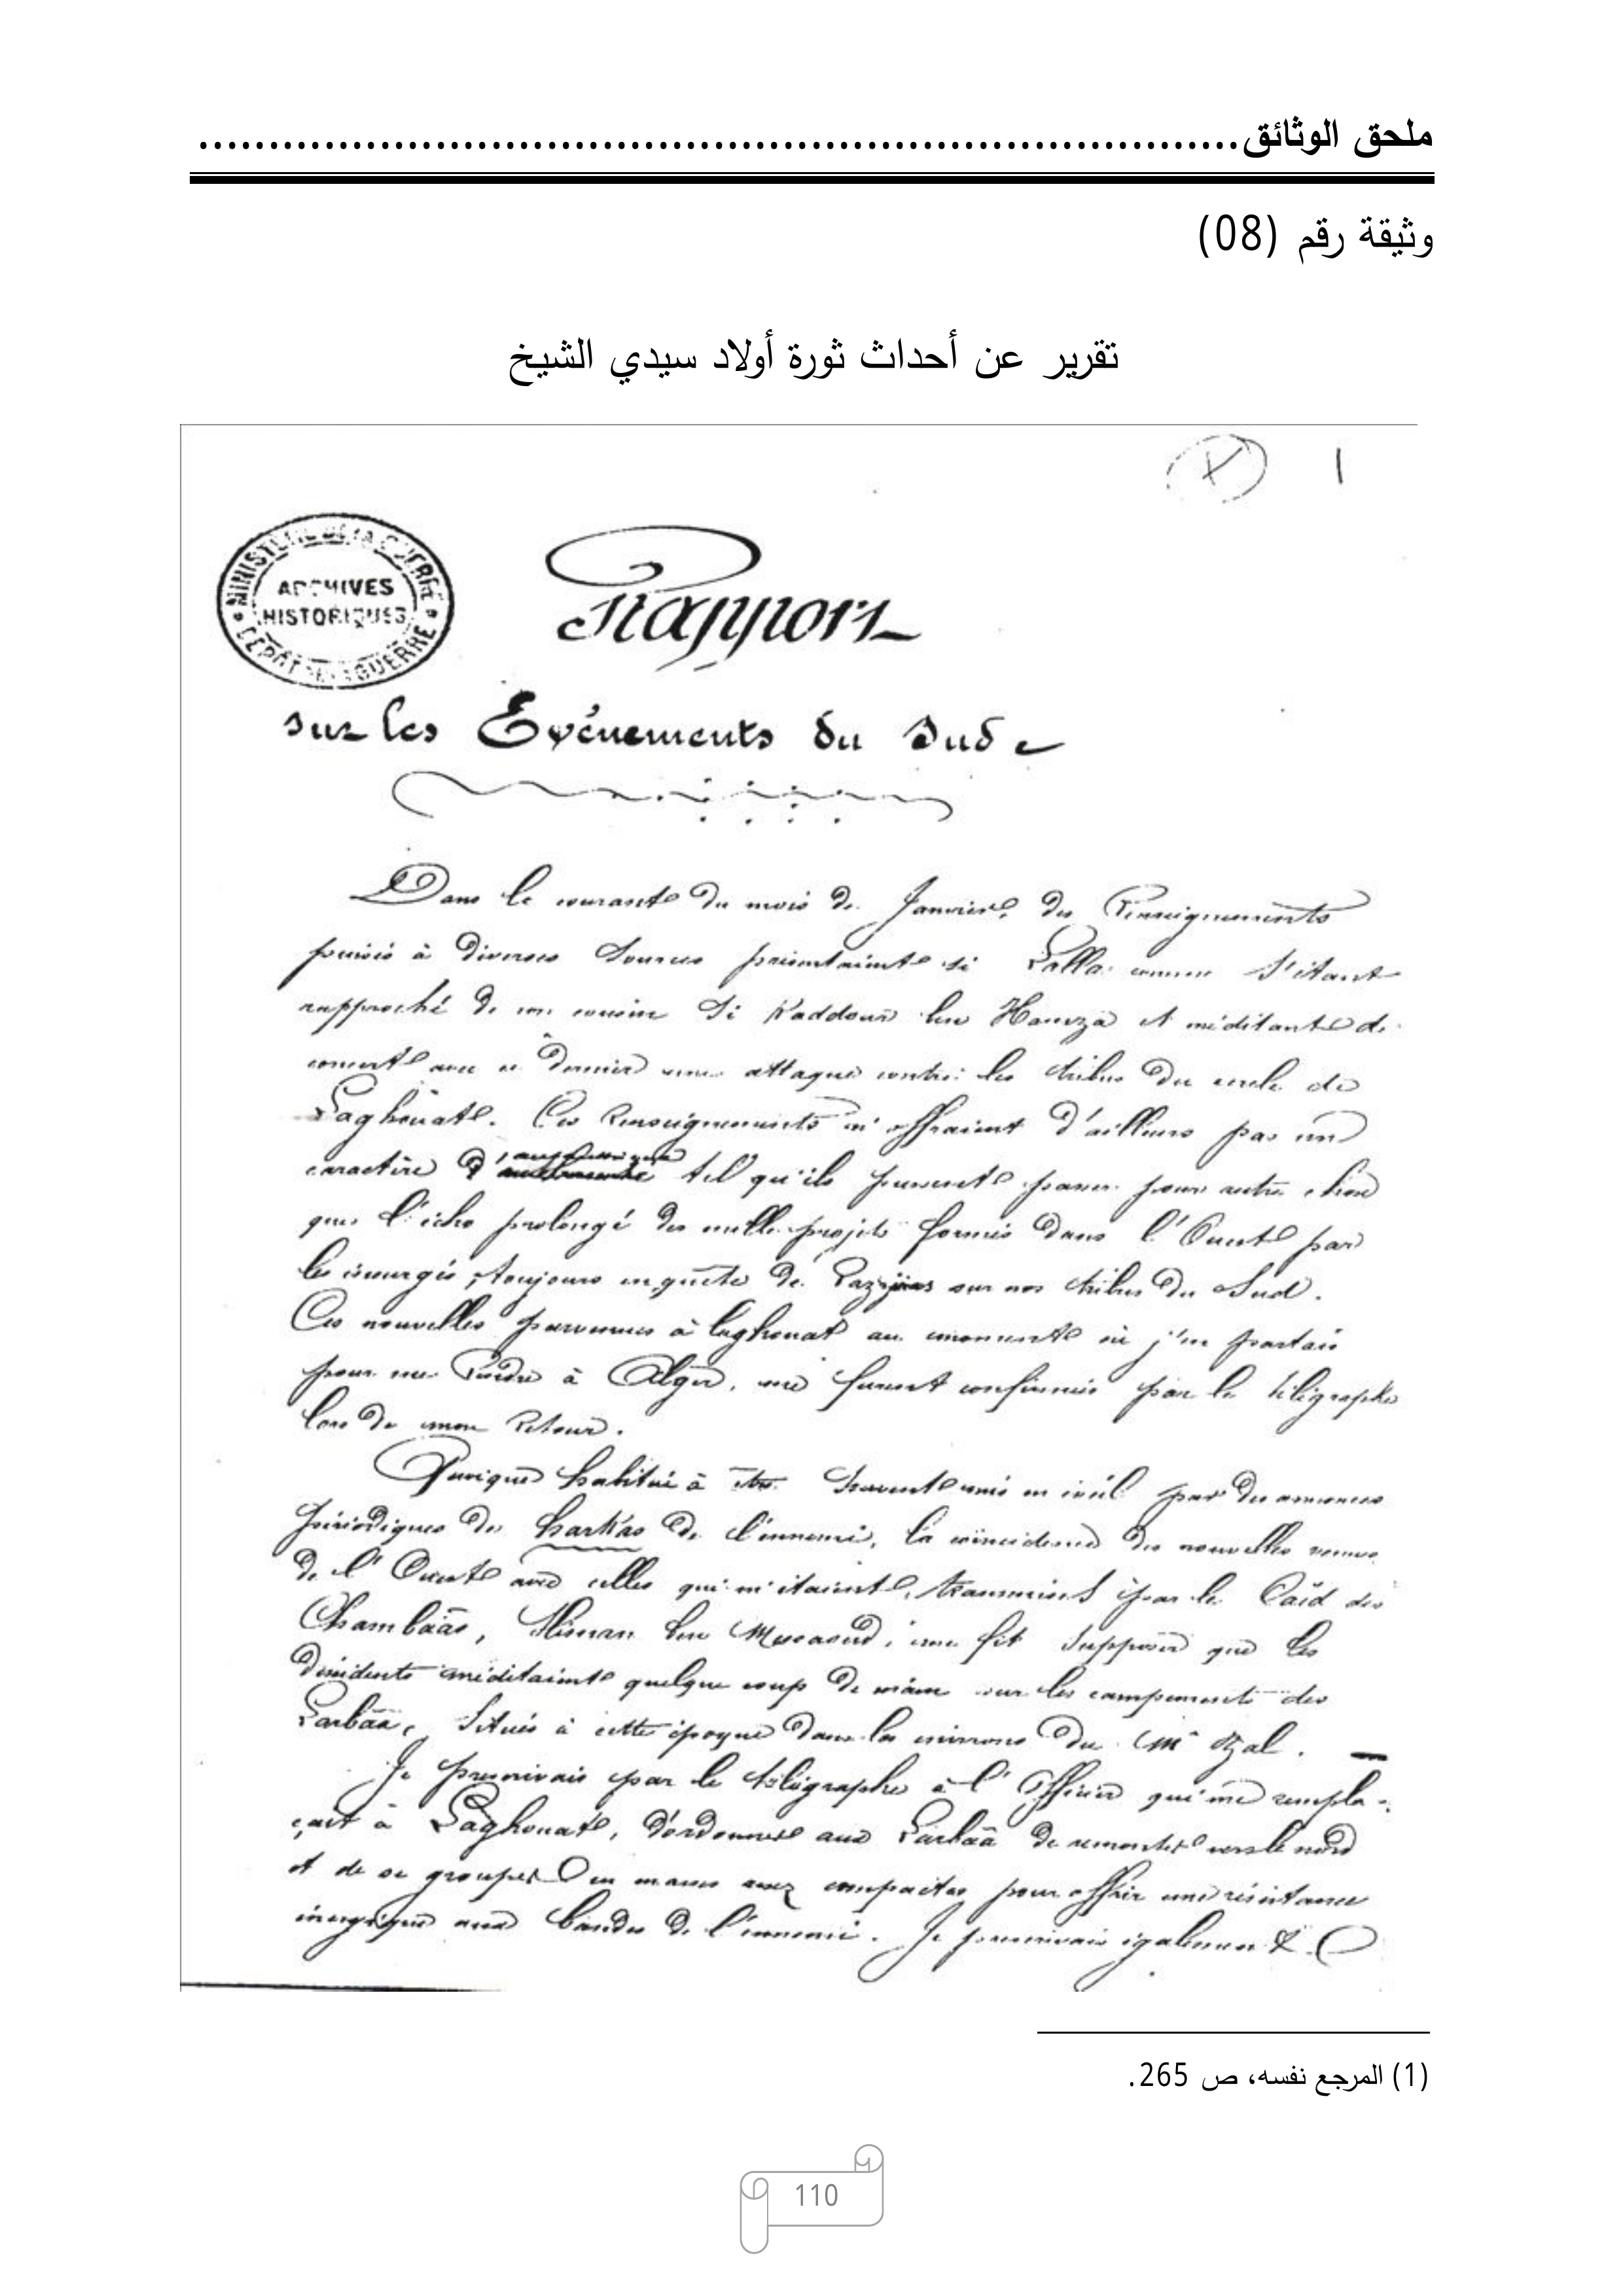 ملحق الوثائق...........................................................................
وثيقة رقم (08)
تقرير عن أحداث ثورة أولاد سيدي الشيخ
1
MINISTERE DE LA GUERRE
ARCHIVES
HISTORIQUES
DEPOT DE LA GUERRE
Rapport
sur les Evénements du Sud
Dans le courant du mois de Janvier, des Renseignements
puisés à diverses Sources présentaient si Lalla comme s'étant
rapproché de son cousin Si Kaddour ben Hamza et méditant de
concert avec ce dernier une attaque contre les tribus du cercle de
Laghouat. Ces Renseignements n'offraient d'ailleurs pas un
caractère d'authenticité tel qu'ils pussent passer pour autre chose
que l'écho prolongé des mille projets formés dans l'Ouest par
les insurgés, toujours en quête de Razzias sur nos tribus du Sud.
Ces nouvelles parvenues à Laghouat au moment où j'en partais
pour me Rendre à Alger, me furent confirmées par le télégraphe
lors de mon Retour.
Quoique habitué à être souvent mis en éveil par des annonces
périodiques des harkas de l'ennemi, la coïncidence des nouvelles venues
de l'Ouest avec celles qui m'étaient transmises par le Caïd des
Chambâas, Sliman ben Messaoud, me fit Supposer que les
dissidents méditaient quelque coup de main sur les campements des
Larbâa, Situés à cette époque dans les environs du M' Zal.
Je prescrivais par le télégraphe à l'Officier qui me rempla-
çait à Laghouat, d'ordonner aux Larbâa de remonter vers le nord
et de se grouper en masses assez compactes pour offrir une résistance
énergique aux bandes de l'ennemi. Je prescrivais également
(1) المرجع نفسه، ص 265.
110